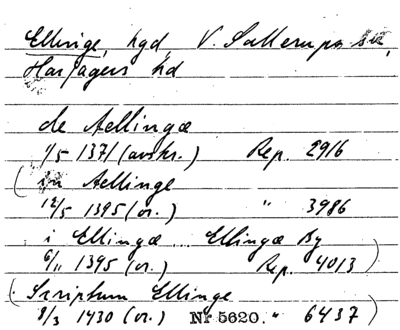 Ellinge, hgd, V. Sallerups sn,
Harjagers hd
de Aellingæ
1/5 1371 (avskr.) Rep. 2916
(in Aellinge
12/5 1395 (or.) " 3986
i Ellingæ... Ellingæ By
6/11 1395 (or.) Rep. 4013)
(Scriptum Ellinge
8/3 1430 (or.) Nr 5620. " 6437)